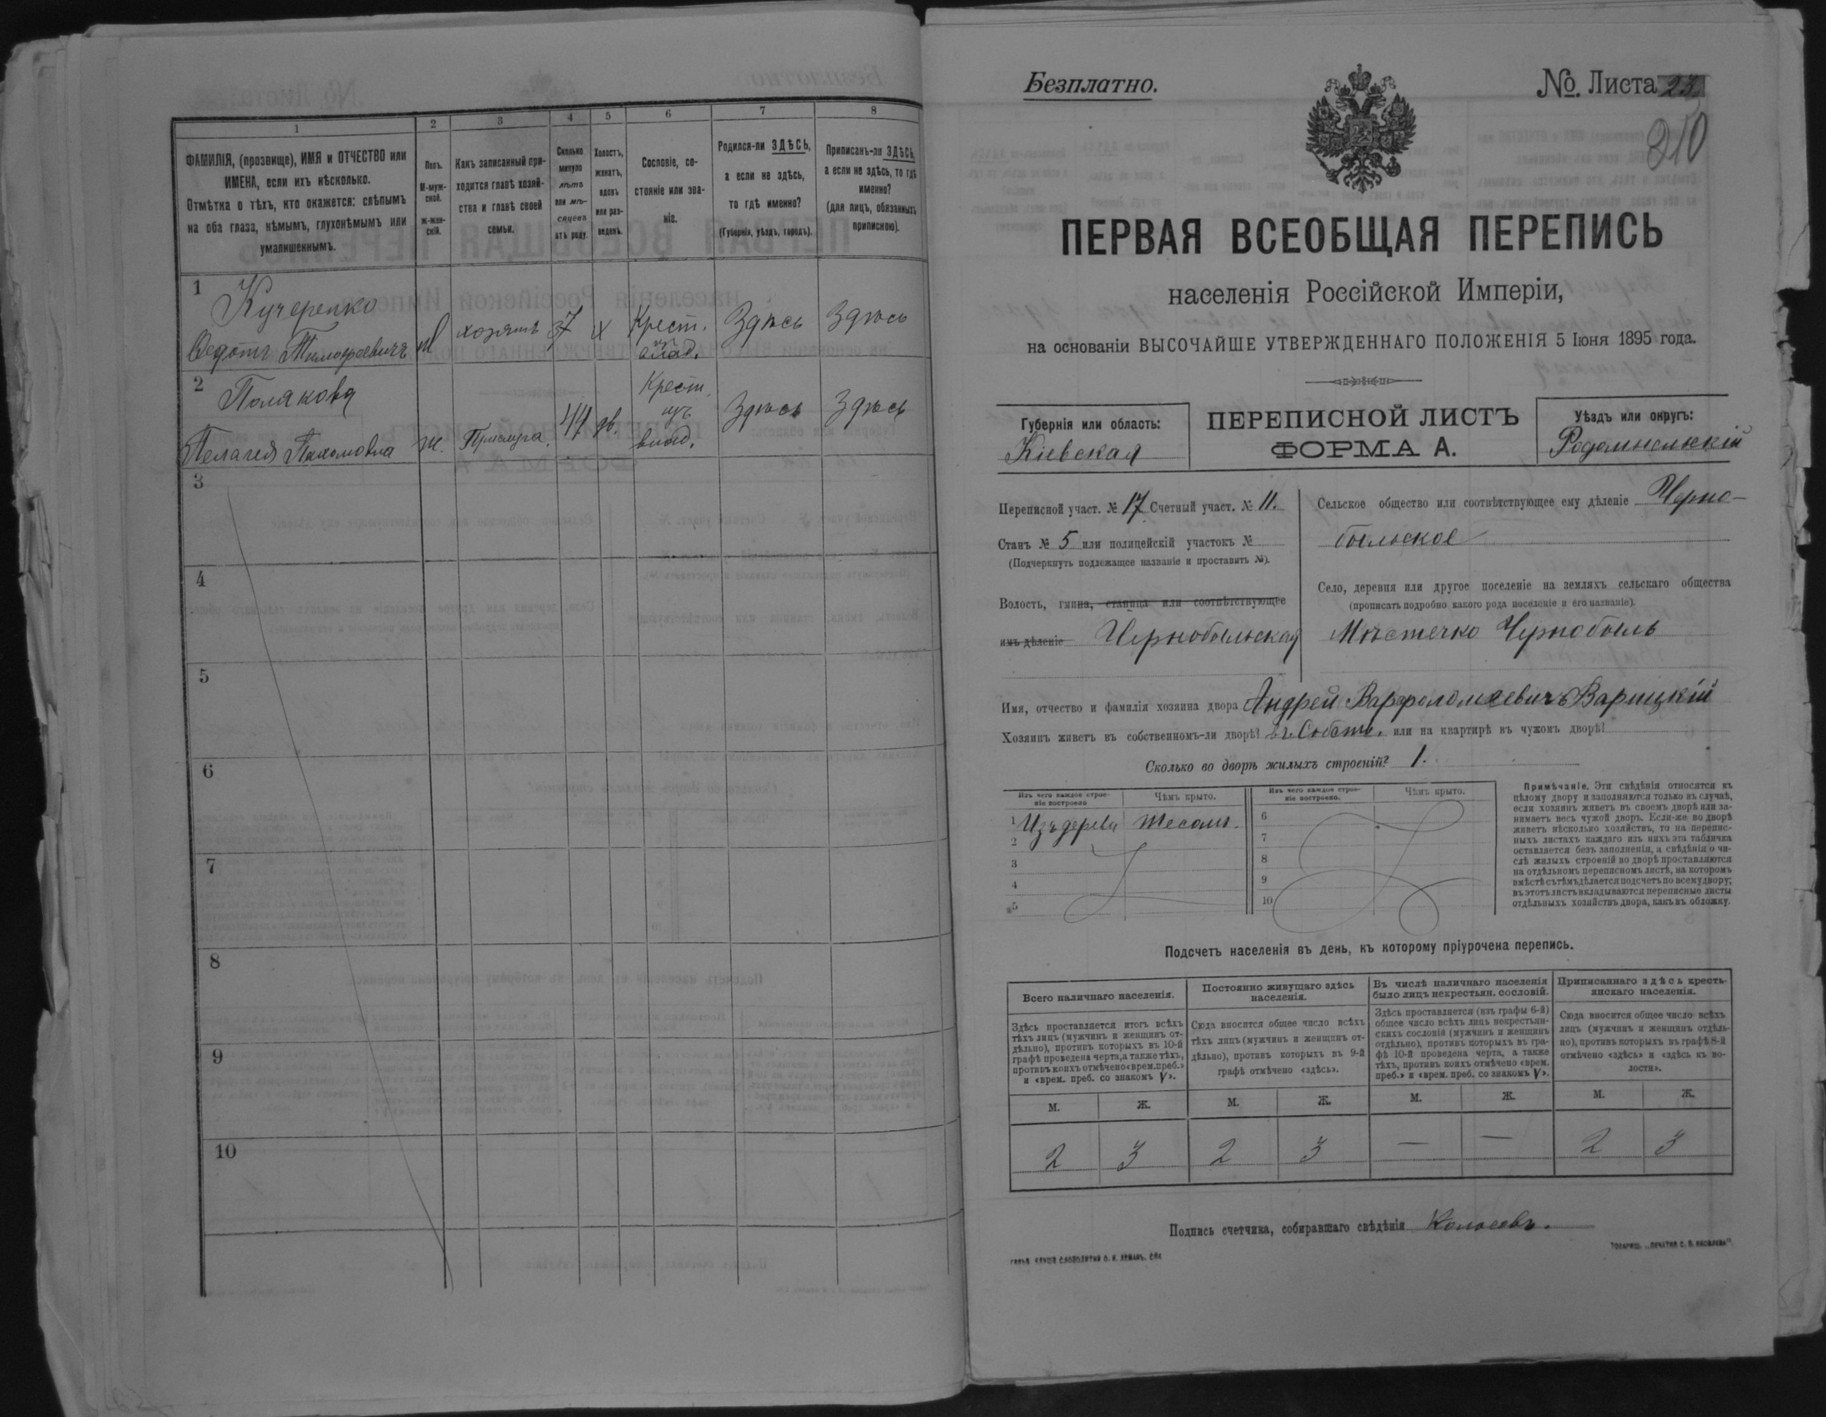 1
2
3
4
5
6
7
8
ФАМИЛІЯ, (прозвище), ИМЯ и ОТЧЕСТВО или
ИМЕНА, если ихъ нѣсколько.
Отмѣтка о тѣхъ, кто окажется: слѣпымъ
на оба глаза, нѣмымъ, глухонѣмымъ или
умалишеннымъ.
Полъ.
М-муж-
ской.
ж-жен-
скій.
Какъ записанный при-
ходится главѣ хозяй-
ства и главѣ своей
семьи.
Сколько
минуло
лѣтъ
или мѣ-
сяцевъ
отъ роду.
Холостъ,
женатъ,
вдовъ
или раз-
веденъ.
Сословіе, со-
стояніе или зва-
ніе.
Родился-ли ЗДѢСЬ,
а если не здѣсь,
то гдѣ именно?
(Губернія, уѣздъ, городъ).
Приписанъ-ли ЗДѢСЬ,
а если не здѣсь, то гдѣ
именно?
(для лицъ, обязанныхъ
припискою).
1
Кучеренко
Федотъ Тимофеевичъ М хозяинъ 37 х Крест. Здѣсь Здѣсь
2
Полякова
Пелагея Пахомовна ж. 44 вд. Крест. изъ влад. Здѣсь Здѣсь
3
4
5
6
7
8
9
10
Безплатно.
№. Листа 23
310
ПЕРВАЯ ВСЕОБЩАЯ ПЕРЕПИСЬ
населенія Россійской Имперіи,
на основаніи ВЫСОЧАЙШЕ УТВЕРЖДЕННАГО ПОЛОЖЕНІЯ 5 Іюня 1895 года.
Губернія или область:
Кіевская
ПЕРЕПИСНОЙ ЛИСТЪ
ФОРМА А.
Уѣздъ или округъ:
Радомысльскій
Переписной участ. № 17 Счетный участ. № 11.
Станъ № 5 или полицейскій участокъ №
(Подчеркнуть подлежащее названіе и проставить №).
Волость, гмина, станица или соотвѣтствующее
имъ дѣленіе Чернобыльская
Сельское общество или соотвѣтствующее ему дѣленіе Черно-
быльское
Село, деревня или другое поселеніе на земляхъ сельскаго общества
(прописать подробно какого рода поселеніе и его названіе)
Мѣстечко Чернобыль
Имя, отчество и фамилія хозяина двора Андрей Варфоломеевичъ Варицкій
Хозяинъ живетъ въ собственномъ-ли дворѣ? въ Собств. или на квартирѣ въ чужомъ дворѣ?
Сколько во дворѣ жилыхъ строеній? 1.
Изъ чего каждое строе-
ніе построено
Чѣмъ крыто.
Изъ чего каждое строе-
ніе построено.
Чѣмъ крыто.
1 Изъ дерева тесомъ.
2
3
4
5
6
7
8
9
10
Примѣчаніе. Эти свѣдѣнія относятся къ
цѣлому двору и заполняются только въ случаѣ,
если хозяинъ живетъ въ своемъ дворѣ или за-
нимаетъ весь чужой дворъ. Если-же во дворѣ
живетъ нѣсколько хозяйствъ, то на перепис-
ныхъ листахъ каждаго изъ нихъ эта табличка
оставляется безъ заполненія, а свѣдѣнія о чи-
слѣ жилыхъ строеній во дворѣ проставляются
на отдѣльномъ переписномъ листѣ, на которомъ
вмѣстѣ съ тѣмъ дѣлается подсчетъ по всему двору;
въ этотъ листъ вкладываются переписные листы
отдѣльныхъ хозяйствъ двора, какъ въ обложку.
Подсчетъ населенія въ день, къ которому пріурочена перепись.
Всего наличнаго населенія.
Постоянно живущаго здѣсь
населенія.
Въ числѣ наличнаго населенія
было лицъ некрестьян. сословій.
Приписаннаго здѣсь кресть-
янскаго населенія.
Здѣсь проставляется итогъ всѣхъ
тѣхъ лицъ (мужчинъ и женщинъ от-
дѣльно), противъ которыхъ въ 10-й
графѣ проведена черта, а также тѣхъ,
противъ коихъ отмѣчено «врем. преб.»
и «врем. преб. со знакомъ V».
Сюда вносится общее число всѣхъ
тѣхъ лицъ (мужчинъ и женщинъ от-
дѣльно), противъ которыхъ въ 9-й
графѣ отмѣчено «здѣсь».
Здѣсь проставляется (изъ графы 6-й)
общее число всѣхъ лицъ некрестьян-
скихъ сословій (мужчинъ и женщинъ
отдѣльно), противъ которыхъ въ гра-
фѣ 10-й проведена черта, а также
тѣхъ, противъ коихъ отмѣчено «врем.
преб.» и «врем. преб. со знакомъ V».
Сюда вносится общее число всѣхъ
лицъ (мужчинъ и женщинъ отдѣль-
но), противъ которыхъ въ графѣ 8-й
отмѣчено «здѣсь» и «здѣсь къ во-
лости».
М. Ж. М. Ж. М. Ж. М. Ж.
2 3 2 3 — — 2 3
Подпись счетчика, собиравшаго свѣдѣнія